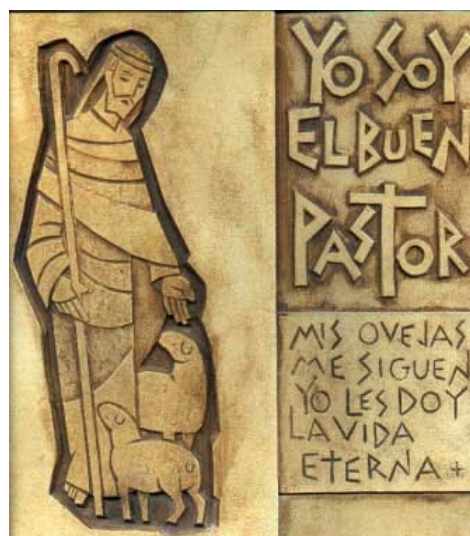 YO SOY
EL BUEN
PASTOR
MIS OVEJAS
ME SIGUEN
YO LES DOY
LA VIDA
ETERNA +